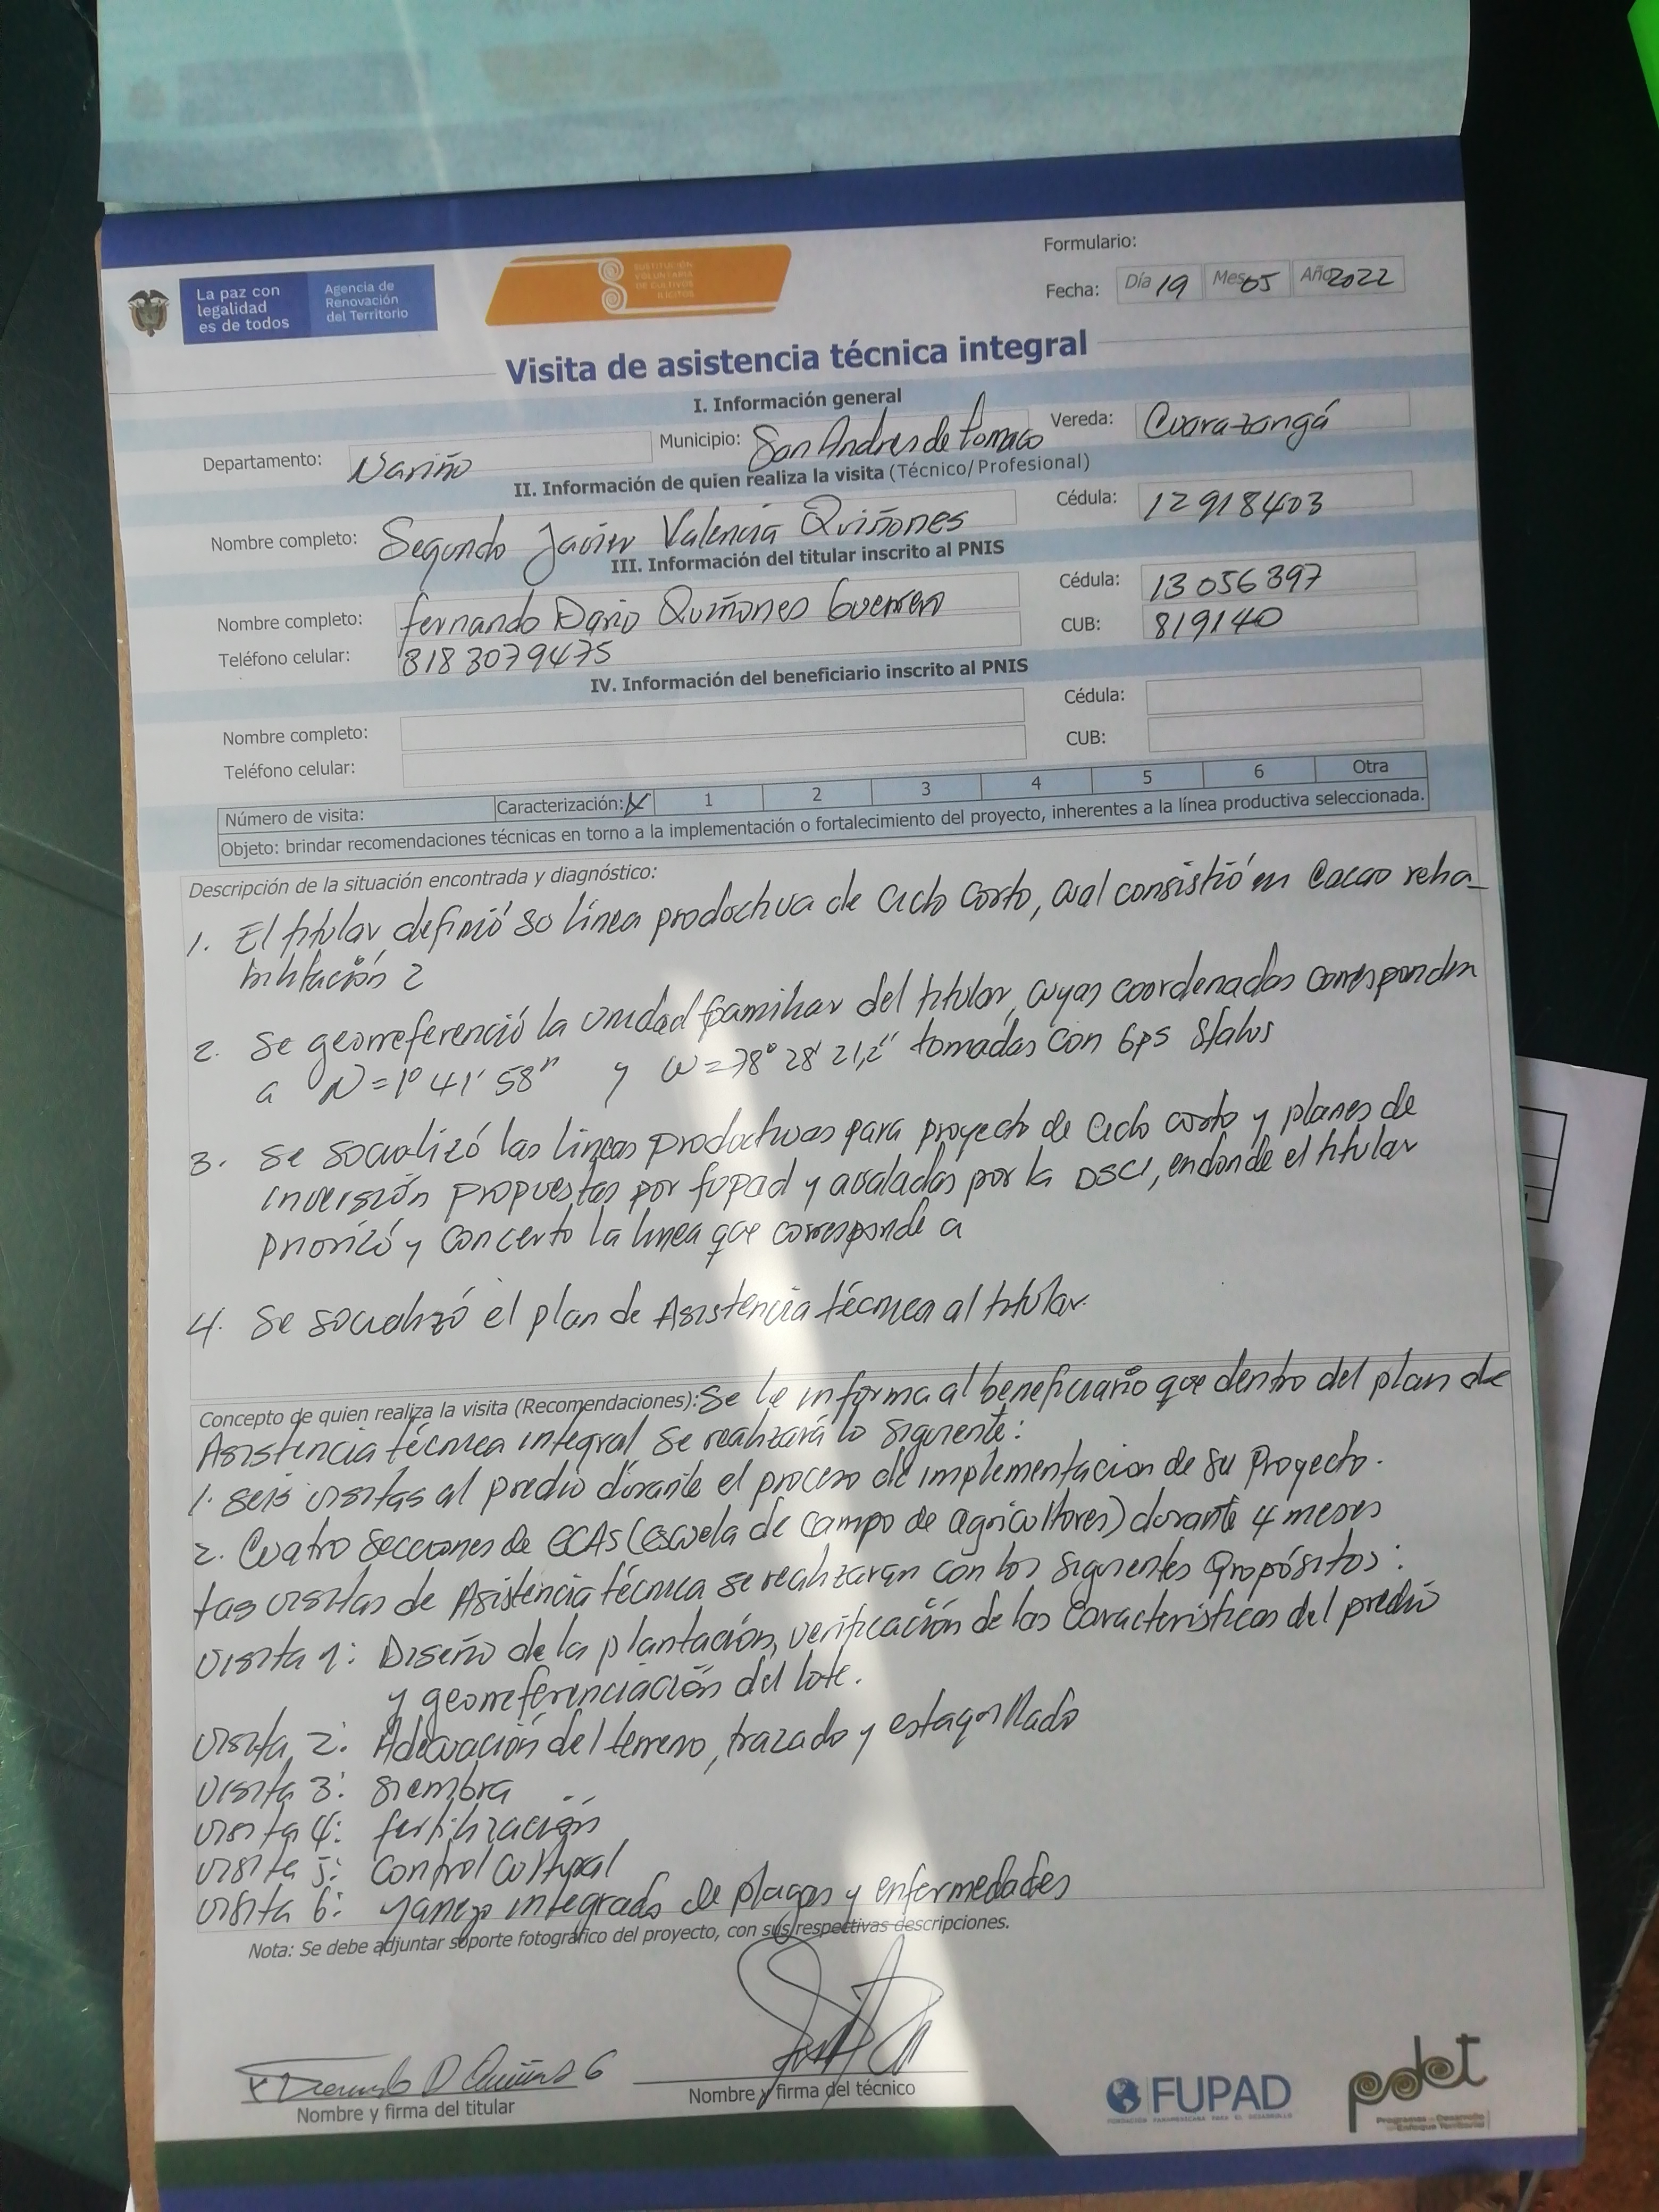 La paz con
legalidad
es de todos
Agencia de
Renovación
del Territorio
SUSTITUCIÓN
VOLUNTARIA
DE CULTIVOS
ILÍCITOS
Formulario:
Fecha: Día 19 Mes 05 Año 2022
Visita de asistencia técnica integral
I. Información general
Departamento: Nariño Municipio: San Andres de Tumaco Vereda: Cuarazangá
II. Información de quien realiza la visita (Técnico/Profesional)
Nombre completo: Segundo Javier Valencia Quiñones Cédula: 12918403
III. Información del titular inscrito al PNIS
Nombre completo: Fernando Dario Quiñones Guerrero Cédula: 13056397
Teléfono celular: 3183079475 CUB: 819140
IV. Información del beneficiario inscrito al PNIS
Nombre completo: Cédula:
Teléfono celular: CUB:
Número de visita: Caracterización: X 1 2 3 4 5 6 Otra
Objeto: brindar recomendaciones técnicas en torno a la implementación o fortalecimiento del proyecto, inherentes a la línea productiva seleccionada.
Descripción de la situación encontrada y diagnóstico:
1. El titular definió su línea productiva de ciclo corto, cual consistió en Cacao reha-
bilitación 2
2. Se georreferenció la unidad familiar del titular, cuyas coordenadas corresponden
a N=1° 41' 58" y W=78° 28' 21,2" tomadas con Gps Status
3. Se socializó las lineas productivas para proyecto de ciclo corto y planes de
inversión propuestas por fupad y avaladas por la DSCI, endonde el titular
priorizó y concerto la linea que corresponde a
4. Se socializó el plan de Asistencia técnica al titular.
Concepto de quien realiza la visita (Recomendaciones): Se le informa al beneficiario que dentro del plan de
Asistencia técnica integral se realizará lo siguiente:
1. Seis visitas al predio durante el proceso de implementacion de su Proyecto.
2. Cuatro secciones de ECAS (escuela de campo de agricultores) durante 4 meses
Las visitas de Asistencia técnica se realizaran con los siguientes Propósitos:
visita 1: Diseño de la plantación, verificación de las características del predio
y georreferenciación del lote.
visita 2: Adecuación del terreno, trazado y estaquillado
visita 3: siembra
visita 4: fertilización
visita 5: Control Cultural
visita 6: Manejo integrado de plagas y enfermedades
Nota: Se debe adjuntar soporte fotográfico del proyecto, con sus respectivas descripciones.
Fernando D Quiñones G
Nombre y firma del titular
Nombre y firma del técnico
FUPAD
FUNDACIÓN PANAMERICANA PARA EL DESARROLLO
pdet
Programas de Desarrollo
con Enfoque Territorial